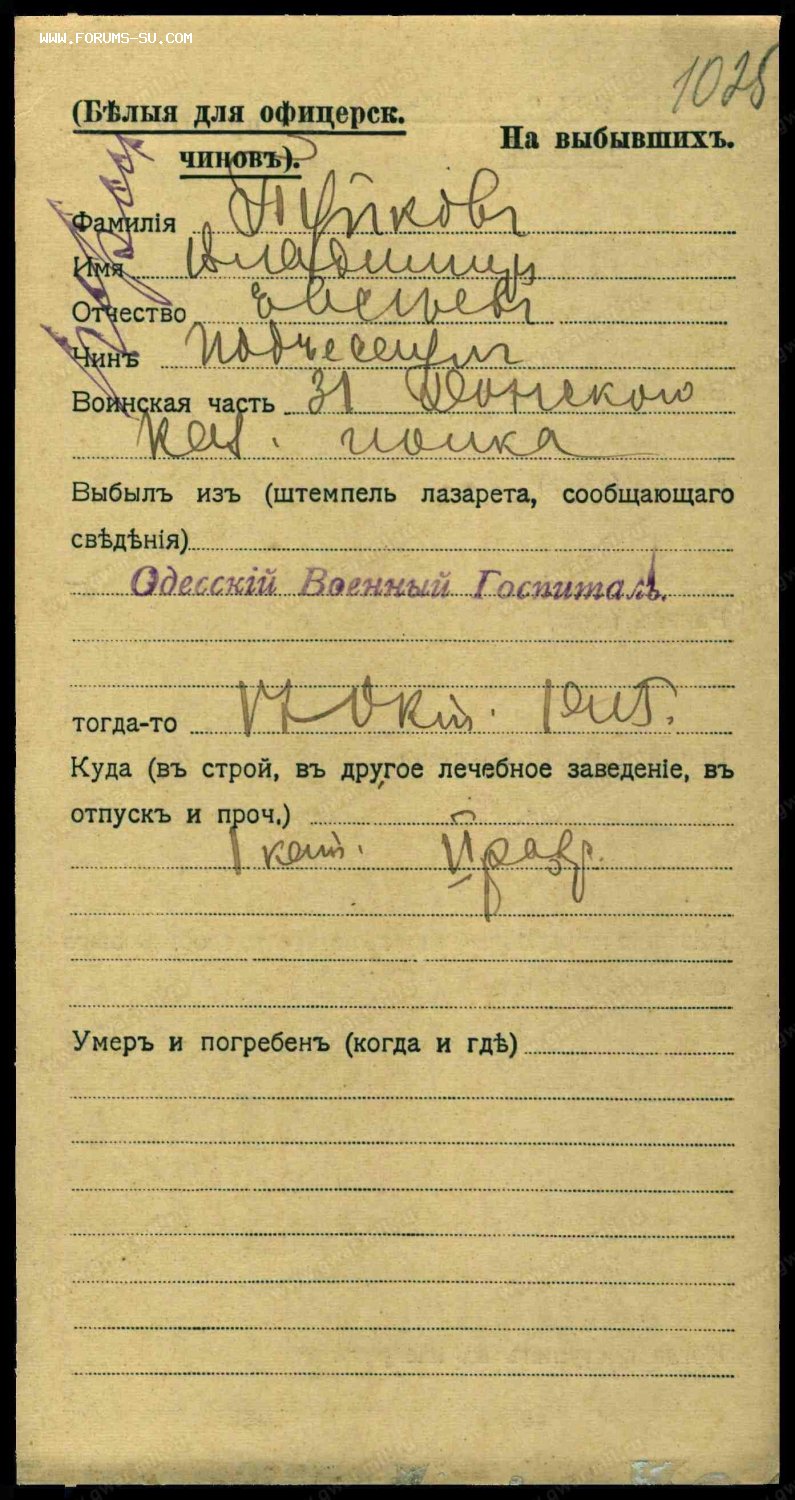 WWW.FORUMS-SU.COM
1025
(Бѣлыя для офицерск.
чиновъ).
На выбывшихъ.
Фамилія
Имя Владимир
Отчество Евсеевъ
Чинъ Подъесаулъ
Воинская часть 31 Донского
каз. полка
Выбылъ изъ (штемпель лазарета, сообщающаго
свѣдѣнія)
Одесскій Военный Госпиталь.
тогда-то 17 Окт.
Куда (въ строй, въ другое лечебное заведеніе, въ
отпускъ и проч.)
I кат. II разр.
Умеръ и погребенъ (когда и гдѣ)